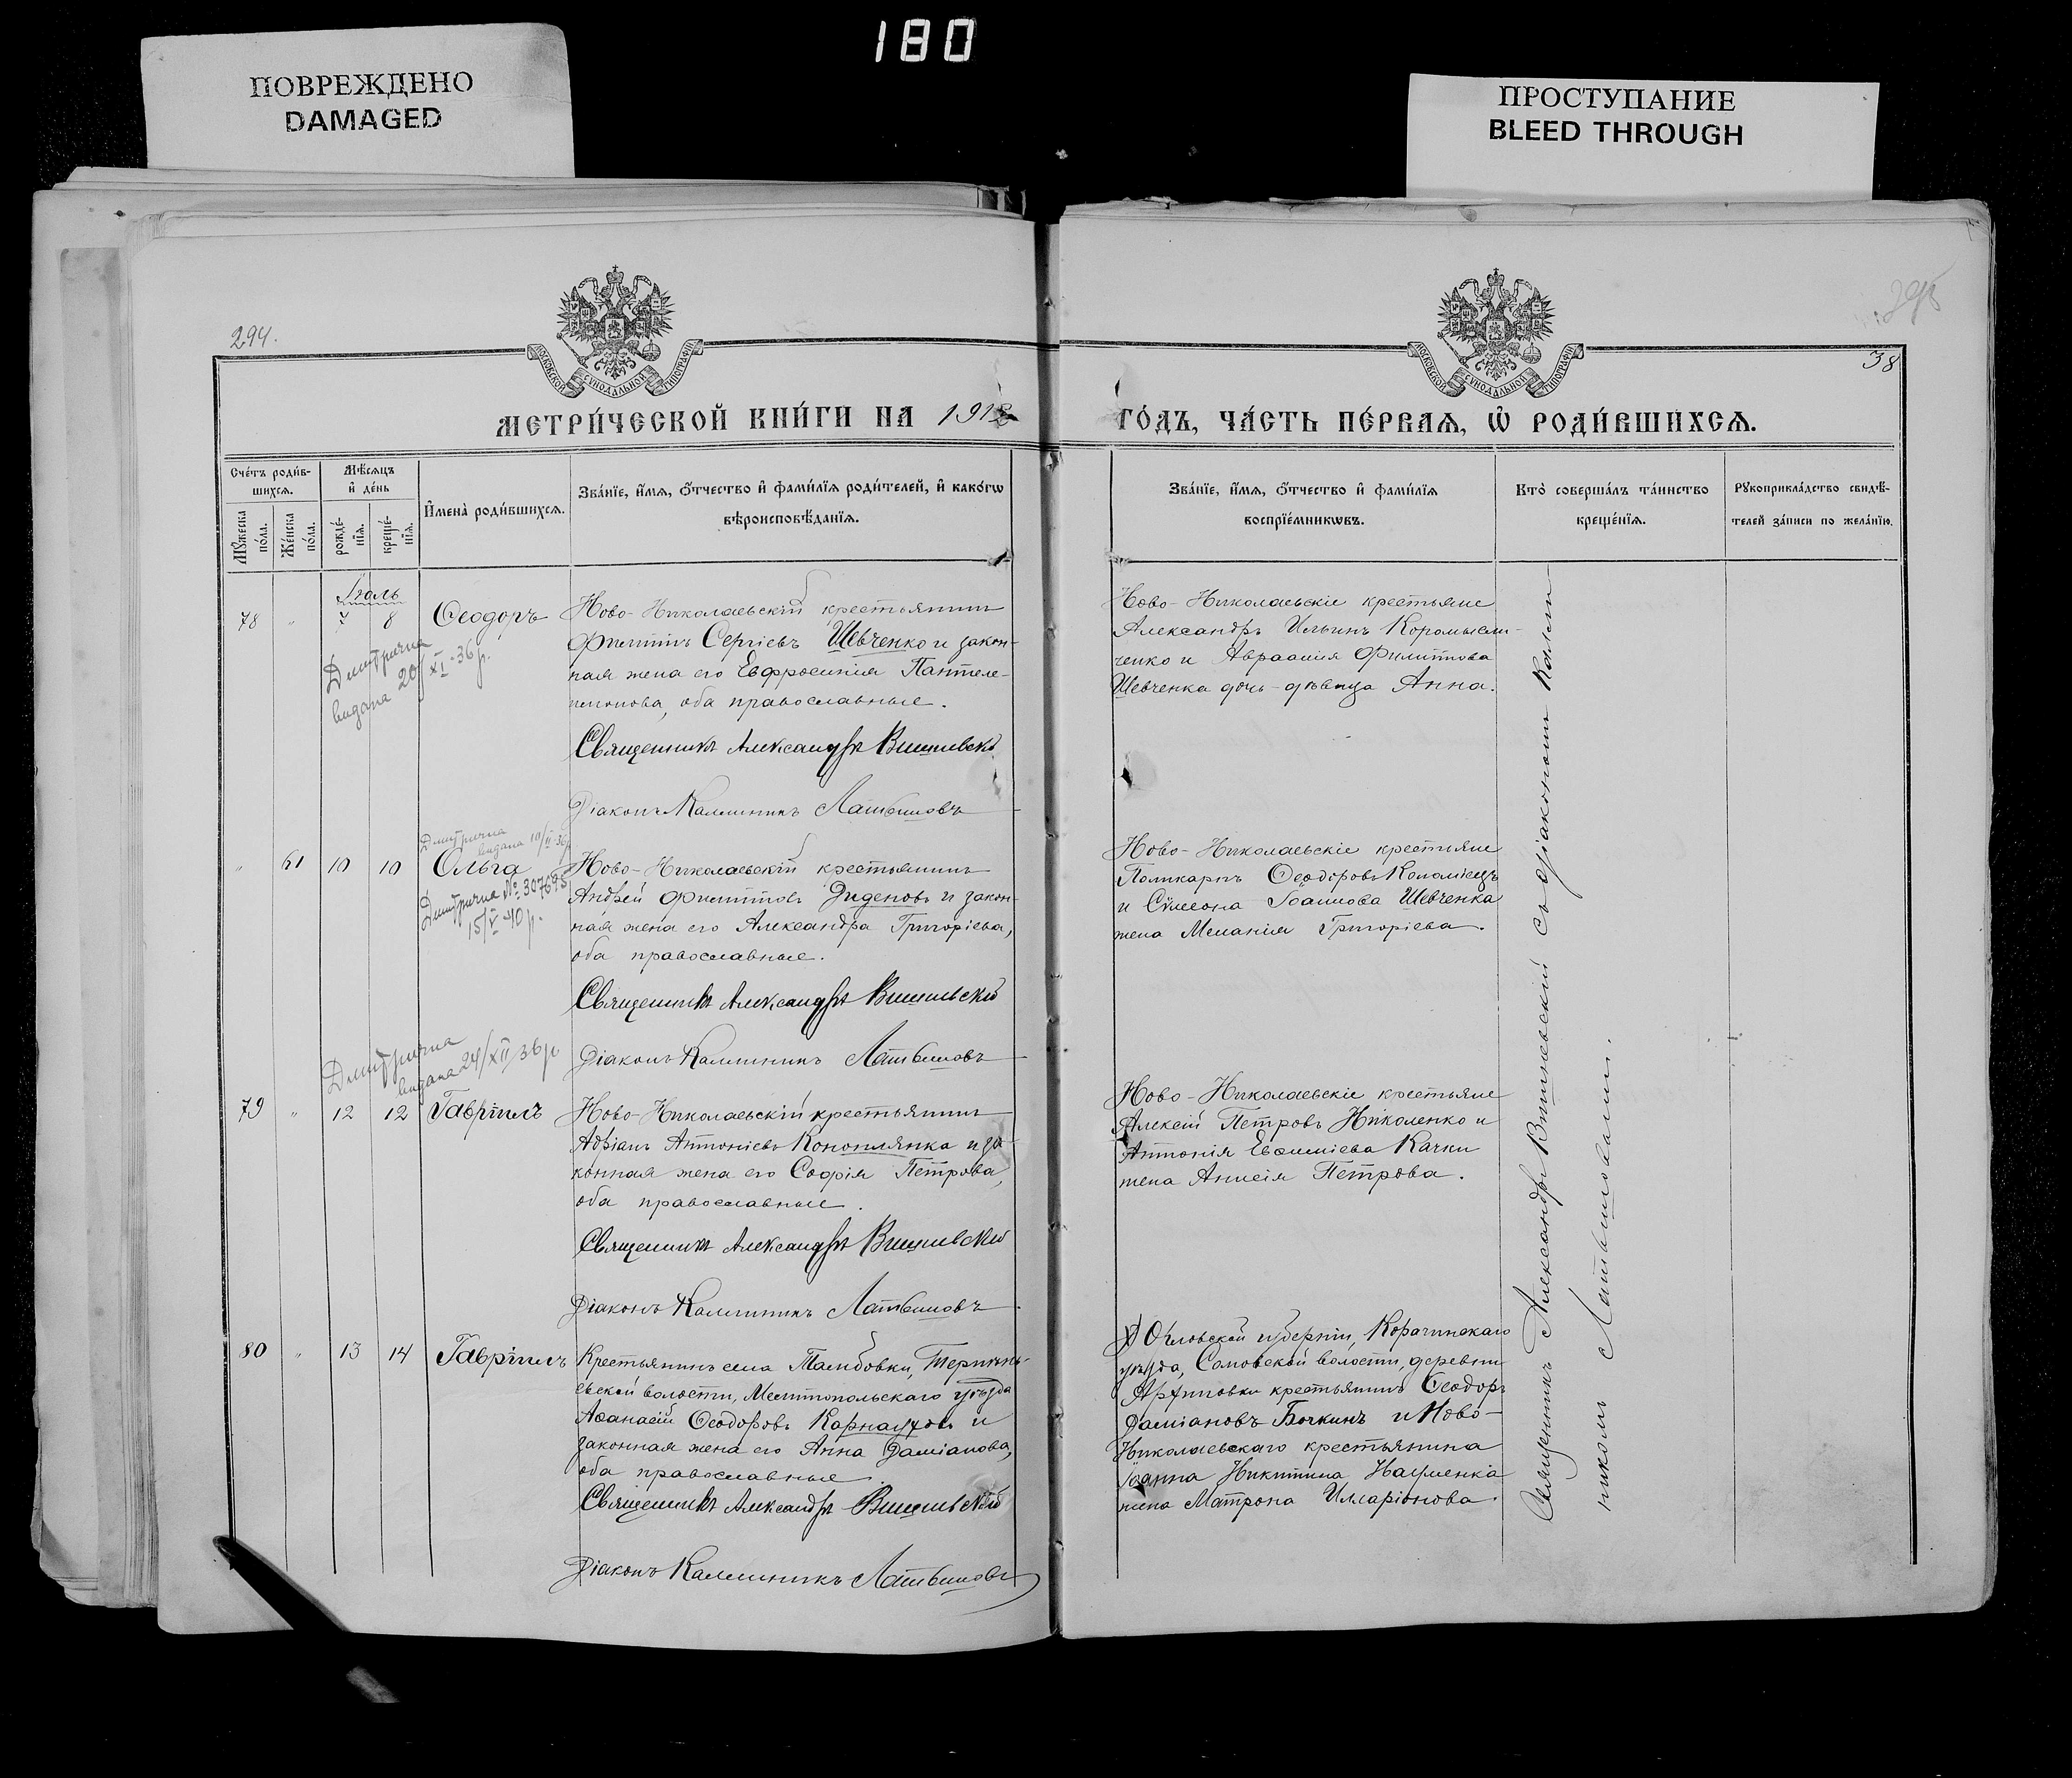 180
ПОВРЕЖДЕНО
DAMAGED
ПРОСТУПАНИЕ
BLEED THROUGH
294.
38
МОСКОВСКОЙ СѴНОДАЛЬНОЙ ТИПОГРАФІИ
МОСКОВСКОЙ СѴНОДАЛЬНОЙ ТИПОГРАФІИ
МЕТРИ́ЧЕСКОЙ КНИ́ГИ НА 1912
ГО́ДЪ, ЧА́СТЬ ПЕ́РВАѦ, Ѽ РОДИ́ВШИХСѦ.
Сче́тъ роди́вшихсѧ.
Мꙋ́жеска по́ла.
Же́нска по́ла.
Мѣ́сѧцъ и҆ де́нь
рожде́нїѧ.
креще́нїѧ.
И҆мена̀ роди́вшихсѧ.
Зва́нїе, и҆́мѧ, ѻ҆́тчество и҆ фами́лїѧ роди́телей, и҆ како́гѡ
вѣроисповѣ́данїѧ.
Зва́нїе, и҆́мѧ, ѻ҆́тчество и҆ фами́лїѧ
воспрїе́мникѡвъ.
Кто̀ соверша́лъ та́инство
креще́нїѧ.
Рꙋкоприкла́дство свидѣ́-
телей за́писи по жела́нїю.
Іюль
78 " 7 8 Ѳеодоръ
Дмитрична
видана 20/XI-36 р.
Ново-Николаевскій крестьянинъ
Филиппъ Сергіевъ Шевченко и закон-
ная жена его Евфросинія Пантеле-
имонова, оба православные.
Священникъ Александръ Вишневскій
Діаконъ Каллиникъ Латышовъ
Ново-Николаевскіе крестьяне
Александръ Ильинъ Коромысли-
ченко и Авраамія Филиппова
Шевченка дочь-дѣвица Анна.
Дмитрична
видана 10/II-36 р.
" 61 10 10 Ольга
Дмитрична № 307695
15/V-40 р.
Ново-Николаевскій крестьянинъ
Андрей Филипповъ Диденовъ и закон-
ная жена его Александра Григоріева,
оба православные.
Священникъ Александръ Вишневскій
Діаконъ Каллиникъ Латышовъ
Ново-Николаевскіе крестьяне
Поликарпъ Ѳеодоровъ Коломіецъ
и Сѵмеона Іоаннова Шевченка
жена Меланія Григоріева.
Дмитрична
видана 24/XII 36 р.
79 " 12 12 Гавріилъ
Ново-Николаевскій крестьянинъ
Адріанъ Антоніевъ Коноплянка и за-
конная жена его Софія Петрова,
оба православные.
Священникъ Александръ Вишневскій
Діаконъ Каллиникъ Латышовъ
Ново-Николаевскіе крестьяне
Алексій Петровъ Николенко и
Антонія Евѳиміева Качки
жена Анисія Петрова.
80 " 13 14 Гавріилъ
Крестьянинъ села Тамбовки, Терпень-
евской волости, Мелитопольскаго уѣзда
Аѳанасій Ѳеодоровъ Карнауховъ и
законная жена его Анна Даміанова,
оба православные.
Священникъ Александръ Вишневскій
Діаконъ Каллиникъ Латышовъ
Орловской губерніи, Корачинскаго
уѣзда, Сомовской волости, деревни
Архиповки крестьянинъ Ѳеодоръ
Даміановъ Бочкинъ и Ново-
Николаевскаго крестьянина
Іоанна Никитина Науменка
жена Матрона Илларіонова.
Священникъ Александръ Вишневскій съ діакономъ Калли-
никомъ Латышовымъ.